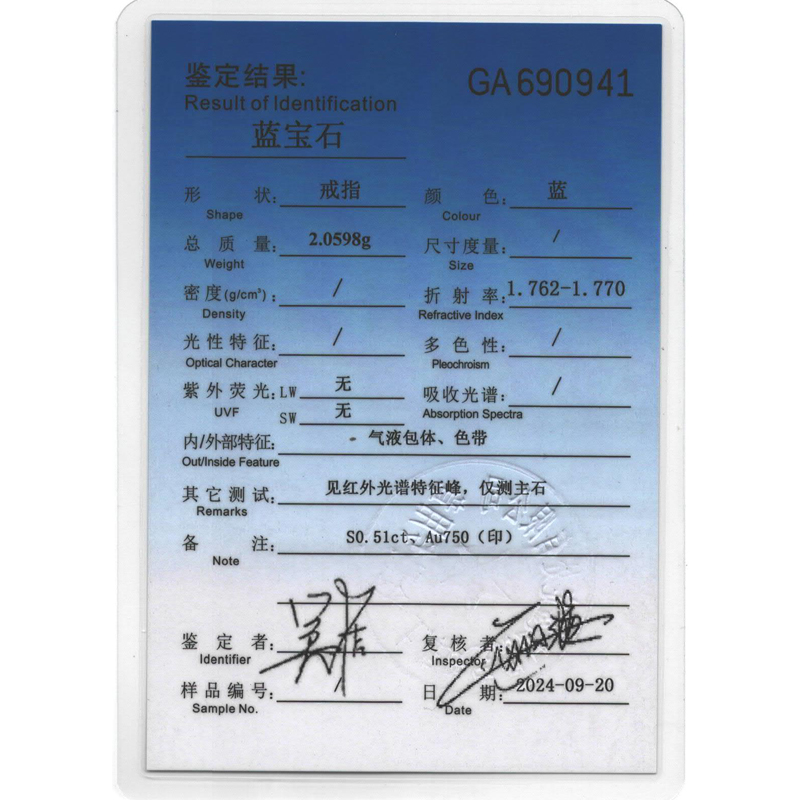 鉴定结果:
GA690941
Result of Identification
蓝宝石
形 状: 戒指 颜 色: 蓝
Shape Colour
总 质 量: 2.0598g 尺寸度量: /
Weight Size
密度(g/cm³): / 折 射 率: 1.762-1.770
Density Refractive Index
光性特征: / 多 色 性: /
Optical Character Pleochroism
紫外荧光: LW 无 吸收光谱: /
UVF SW 无 Absorption Spectra
内/外部特征: 气液包体、色带
Out/Inside Feature
其它测试: 见红外光谱特征峰，仅测主石
Remarks
备 注: S0.51ct、Au750（印）
Note
鉴 定 者: 复 核 者:
Identifier Inspector
样品编号: 日 期: 2024-09-20
Sample No. Date